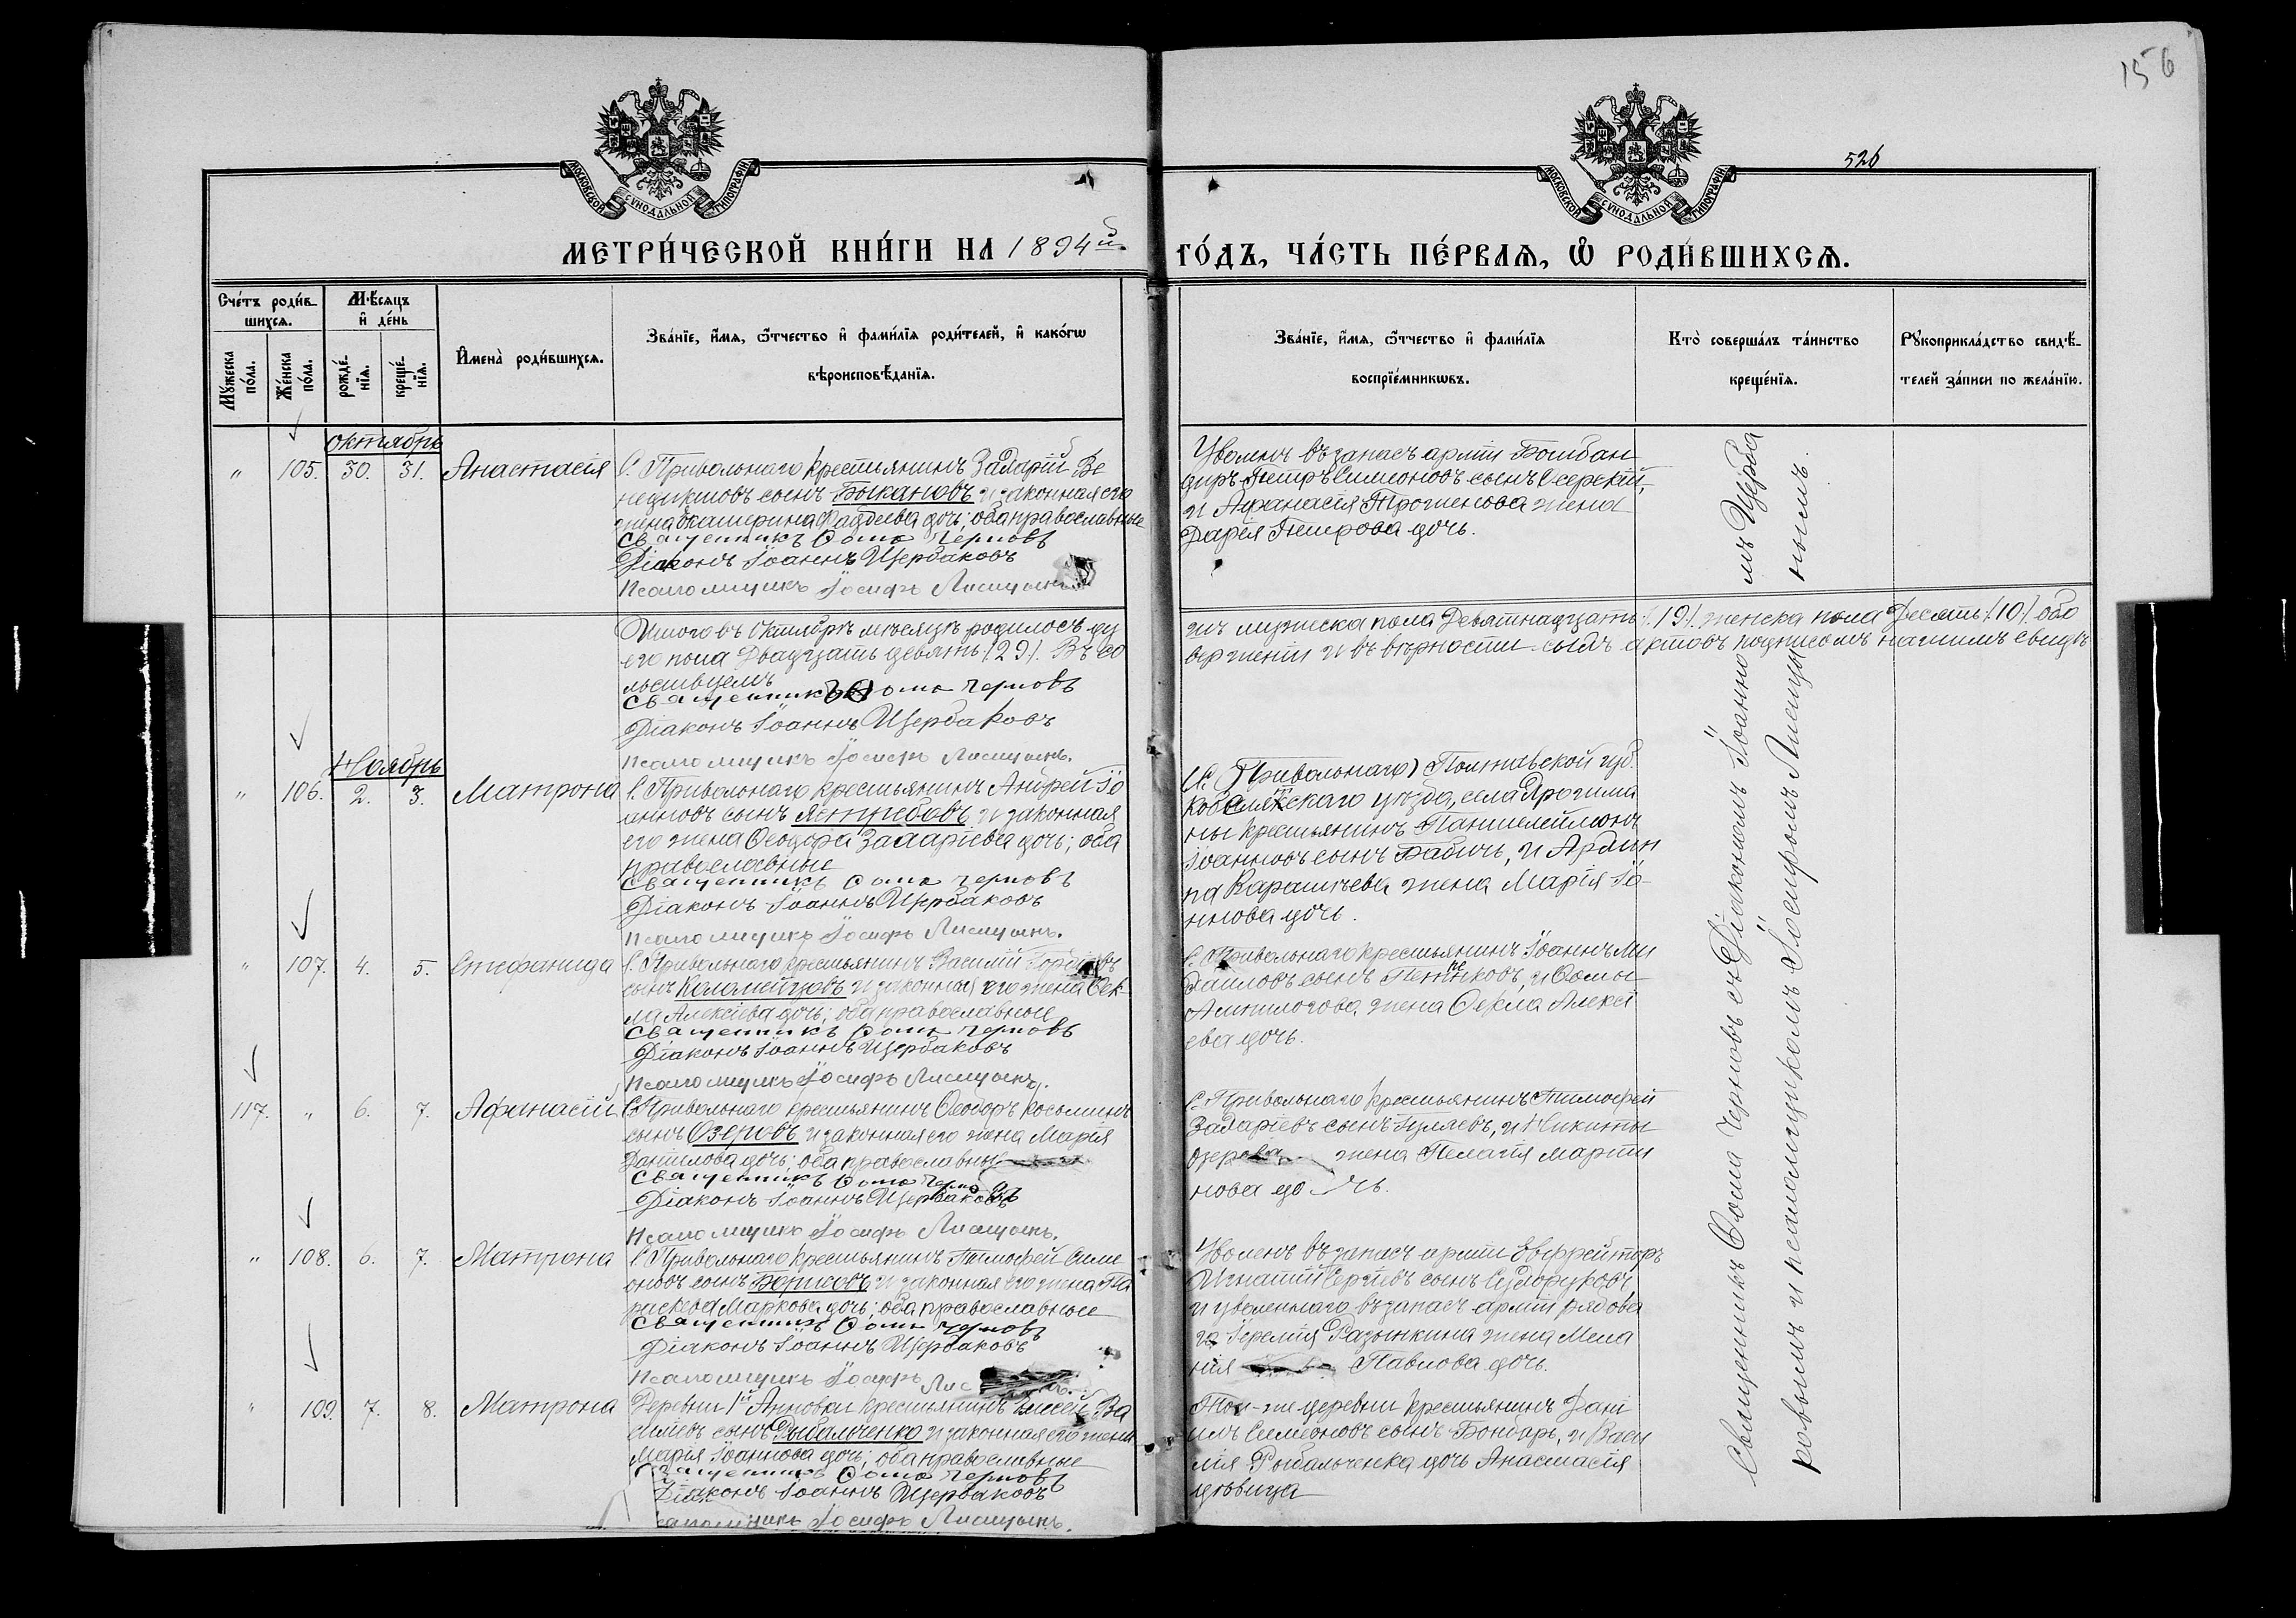 156
526
МОСКОВСКОЙ СѴНОДАЛЬНОЙ ТИПОГРАФІИ
МОСКОВСКОЙ СѴНОДАЛЬНОЙ ТИПОГРАФІИ
МЕТРИ́ЧЕСКОЙ КНИ́ГИ НА 1894й
ГО́ДЪ, ЧА́СТЬ ПЕ́РВАѦ, Ѡ҆ РОДИ́ВШИХСѦ.
Сче́тъ роди́в-
шихсѧ.
Мѣ́сяцъ
и҆ де́нь
Мꙋ́жеска
по́ла.
Же́нска
по́ла.
рожде́-
нїѧ.
креще́-
нїѧ.
И҆мена̀ роди́вшихсѧ.
Зва́нїе, и҆́мѧ, ѻ҆́тчество и҆ фами́лїѧ роди́телей, и҆ како́гѡ
вѣроисповѣ́данїѧ.
Зва́нїе, и҆́мѧ, ѻ҆́тчество и҆ фами́лїѧ
воспрїе́мникѡвъ.
Кто̀ соверша́лъ та́инство
креще́нїѧ.
Рꙋкоприкла́дство свидѣ́-
телей за́писи по жела́нїю.
Октябрь
" 105. 30. 31. Анастасія
С. Привольнаго крестьянинъ Захарій Ве
недиктовъ сынъ Быкановъ и законная его
жена Екатерина Фаддеева дочь; оба православные
Священникъ Ѳома Черновъ
Діаконъ Іоаннъ Щербаковъ
Псаломщикъ Іосифъ Лисицынъ
Уволенъ въ запасъ арміи Бомбан
диръ Петръ Симеоновъ сынъ Осерскій,
и Афанасія Трогленова жена
Дарія Петрова дочь.
Итого въ Октябрѣ мѣсяцѣ родилось ху
его пола Двадцать девять /29/. Въ со
льствуемъ
Священникъ Ѳома Черновъ
Діаконъ Іоаннъ Щербаковъ
Псаломщикъ Іосифъ Лисицынъ.
тъ мужеска пола Девятнадцать /19/. женска пола Десять /10/. обо
вержети и въ вѣрности сихъ актовъ подписомъ нашимъ свидѣ
Ноябрь
" 106. 2. 3. Матрона
С. Привольнаго крестьянинъ Андрей Іо
анновъ сынъ Ястребовъ и законная
его жена Ѳеодора Захаріева дочь; оба
православные
Священникъ Ѳома Черновъ
Діаконъ Іоаннъ Щербаковъ
Псаломщикъ Іосифъ Лисицынъ.
(С. Привольнаго) Полтавской губ.
Кобелякскаго уѣзда, села
ны крестьянинъ Пантелеймонъ
Іоанновъ сынъ Бабичъ, и Архип
па Карашчева жена Марія Іо-
ннова дочь.
" 107. 4. 5. Стефанида
С. Привольнаго крестьянинъ Василій
сынъ Коломейцовъ и законная его жена Ѳек-
ла Алексіева дочь; оба православные
Священникъ Ѳома Черновъ
Діаконъ Іоаннъ Щербаковъ
Псаломщикъ Іосифъ Лисицынъ.
С. Привольнаго крестьянинъ Іоаннъ Ми
хаиловъ сынъ Петенковъ, и Ѳомы
Ампилогова жена Ѳекла Алексі
ева дочь.
117. " 6. 7. Афанасій
С. Привольнаго крестьянинъ Ѳеодоръ Косьминъ
сынъ Озеровъ и законная его жена Марія
Даніилова дочь; оба православные
Священникъ Ѳома Черновъ
Діаконъ Іоаннъ Щербаковъ
Псаломщикъ Іосифъ Лисицынъ.
С. Привольнаго крестьянинъ Тимофей
Захаріевъ сынъ Гуляевъ, и Никиты
Озерова жена Пелагія Марти
нова дочь.
" 108. 6. 7. Матрона
С. Привольнаго крестьянинъ Тимофей Симе
оновъ сынъ Борисовъ и законная его жена Па
раскева Маркова дочь; оба православные
Священникъ Ѳома Черновъ
Діаконъ Іоаннъ Щербаковъ
Псаломщикъ Іосифъ Лис
Уволенъ въ запасъ арміи Ефрейторъ
Игнатій Сергіевъ сынъ
и уволеннаго въ запасъ арміи рядова
го Іереміи Разынкина жена Мела
нія Павлова дочь.
" 109. 7. 8. Матрона
Деревни 1й Анновки крестьянинъ Елисей Ва
силіевъ сынъ Рыбальченко и законная его жена
Марія Іоаннова дочь; оба православные
Священникъ Ѳома Черновъ
Діаконъ Іоаннъ Щербаковъ
Псаломщикъ Іосифъ Лисицынъ.
Той-же деревни крестьянинъ Дані
илъ Симеоновъ сынъ Бондарь, и Васи
лія Рыбальченка дочь Анастасія
дѣвица
Священникъ Ѳома Черновъ съ Діакономъ Іоанно
мъ Щерба
ковымъ и псаломщикомъ Іосифомъ Лисицы
нымъ.